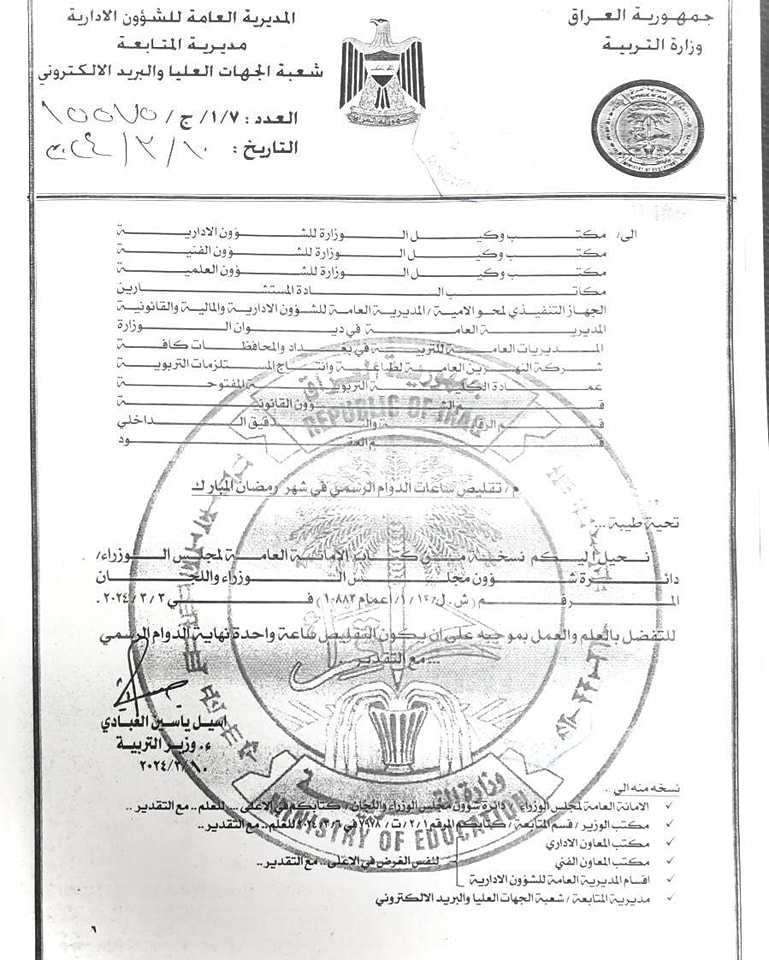 جمهورية العراق
وزارة التربية
المديرية العامة للشؤون الادارية
مديرية المتابعة
شعبة الجهات العليا والبريد الالكتروني
العدد : ١/٧/ ج /
التاريخ : ١٠ / ٣ / ٢٠٢٤
REPUBLIC OF IRAQ
MINISTRY OF EDUCATION
الى/ مكتب وكيل الوزارة للشؤون الادارية
مكتب وكيل الوزارة للشؤون الفنية
مكتب وكيل الوزارة للشؤون العلمية
مكاتب السادة المستشارين
الجهاز التنفيذي لمحو الامية / المديرية العامة للشؤون الادارية والمالية والقانونية
المديرية العامة في ديوان الوزارة
المديريات العامة للتربية في بغداد والمحافظات كافة
شركة النهرين العامة لطباعة وانتاج المستلزمات التربوية
عمادة الكلية التربوية المفتوحة
قسم الشؤون القانونية
قسم الرقابة والتدقيق الداخلي
قسم العقود
م / تقليص ساعات الدوام الرسمي في شهر رمضان المبارك
تحية طيبة ...
نحيل اليكم نسخة من كتاب الامانة العامة لمجلس الوزراء/
دائرة شؤون مجلس الوزراء واللجان
المرقم (ش.ل/١٠/١/اعمام/١٠٨٨٣) في ٢٠٢٤/٣/٣ .
للتفضل بالعلم والعمل بموجبه على ان يكون التقليص ساعة واحدة نهاية الدوام الرسمي
... مع التقدير ..
اسيل ياسين العبادي
ء. وزير التربية
٢٠٢٤/٣/١٠
جمهورية العراق
REPUBLIC OF IRAQ
وزارة التربية
MINISTRY OF EDUCATION
نسخه منه الى ..
✓ الامانة العامة لمجلس الوزراء / دائرة شؤون مجلس الوزراء واللجان / كتابكم في الاعلى .... للعلم.. مع التقدير ..
✓ مكتب الوزير / قسم المتابعة / كتابكم المرقم ٢/١/ت/٧٩٧٨ في ٢٠٢٤/٣/٦ للعلم.. مع التقدير ..
✓ مكتب المعاون الاداري
✓ مكتب المعاون الفني
لنفس الغرض في الاعلى.. مع التقدير ..
✓ اقسام المديرية العامة للشؤون الادارية
✓ مديرية المتابعة / شعبة الجهات العليا والبريد الالكتروني
٦